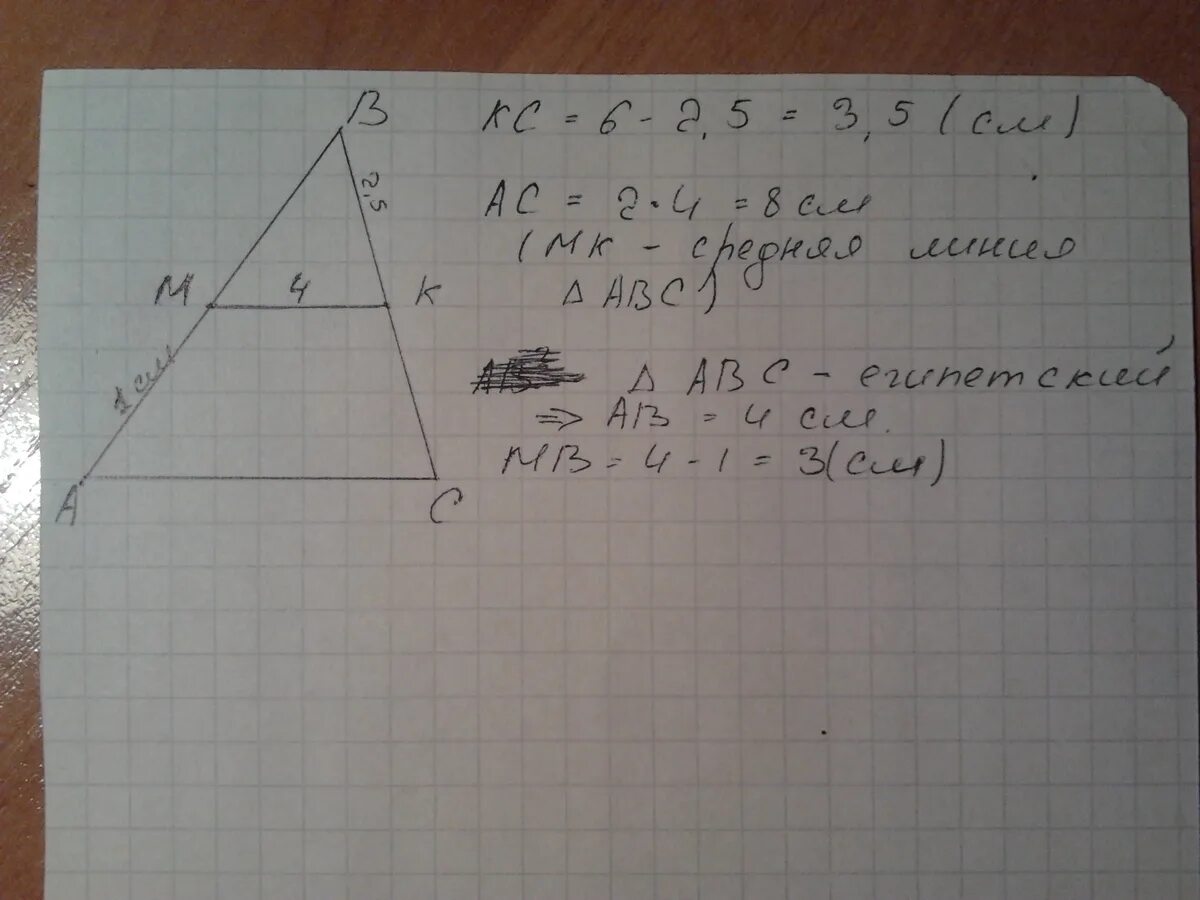 B
2,5
M 4 K
1 см
A
C
KC = 6 - 2,5 = 3,5 (см)
AC = 2·4 = 8 см
(MK - средняя линия
△ ABC)
△ ABC - египетский
=> AB = 4 см.
MB = 4 - 1 = 3(см)